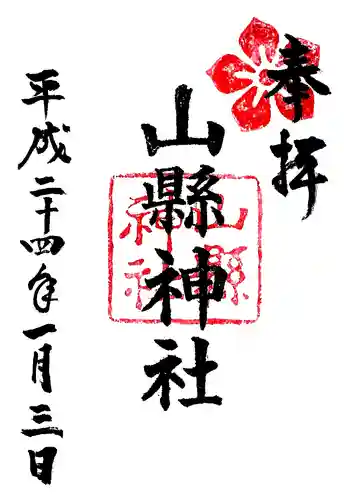 奉拝
山縣神社
山縣神社
平成二十四年一月三日